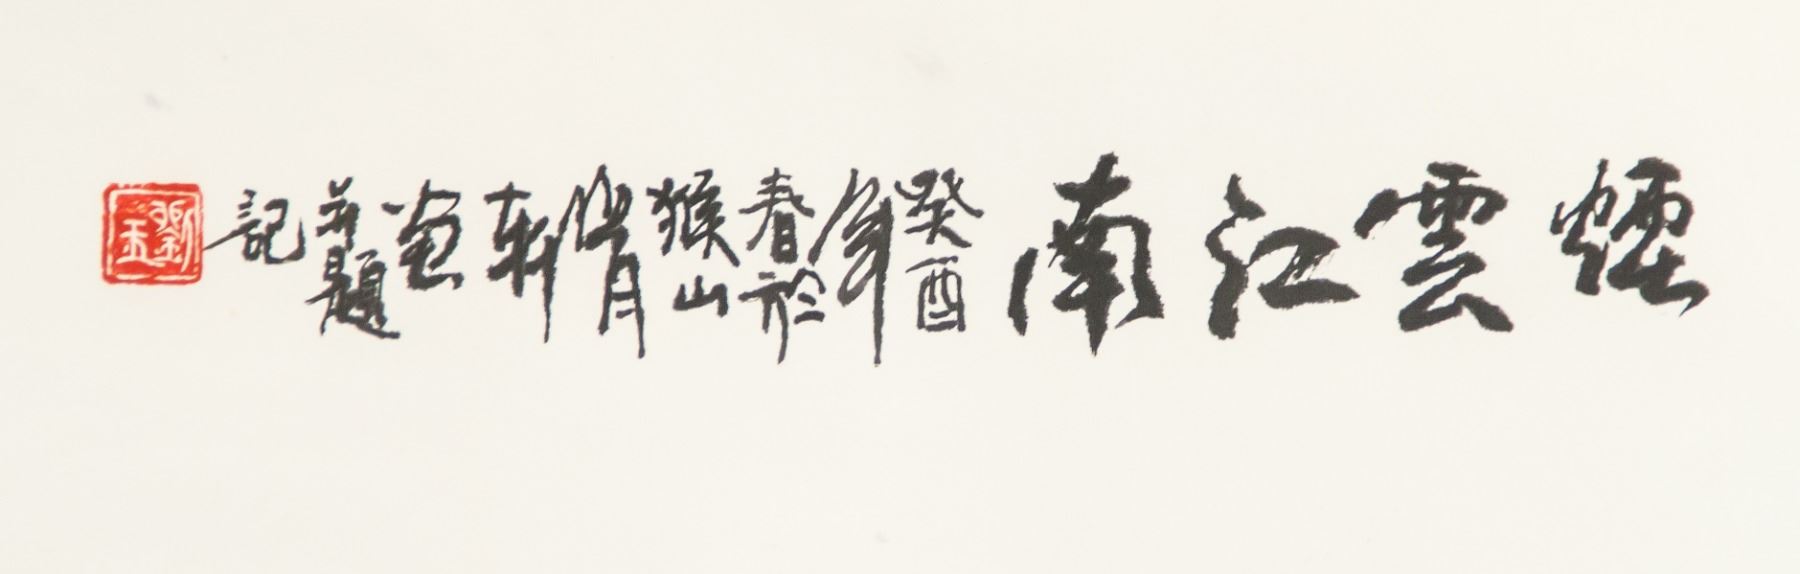 煙雲江南
癸酉年春於猴山軒畫並題記
劉玉